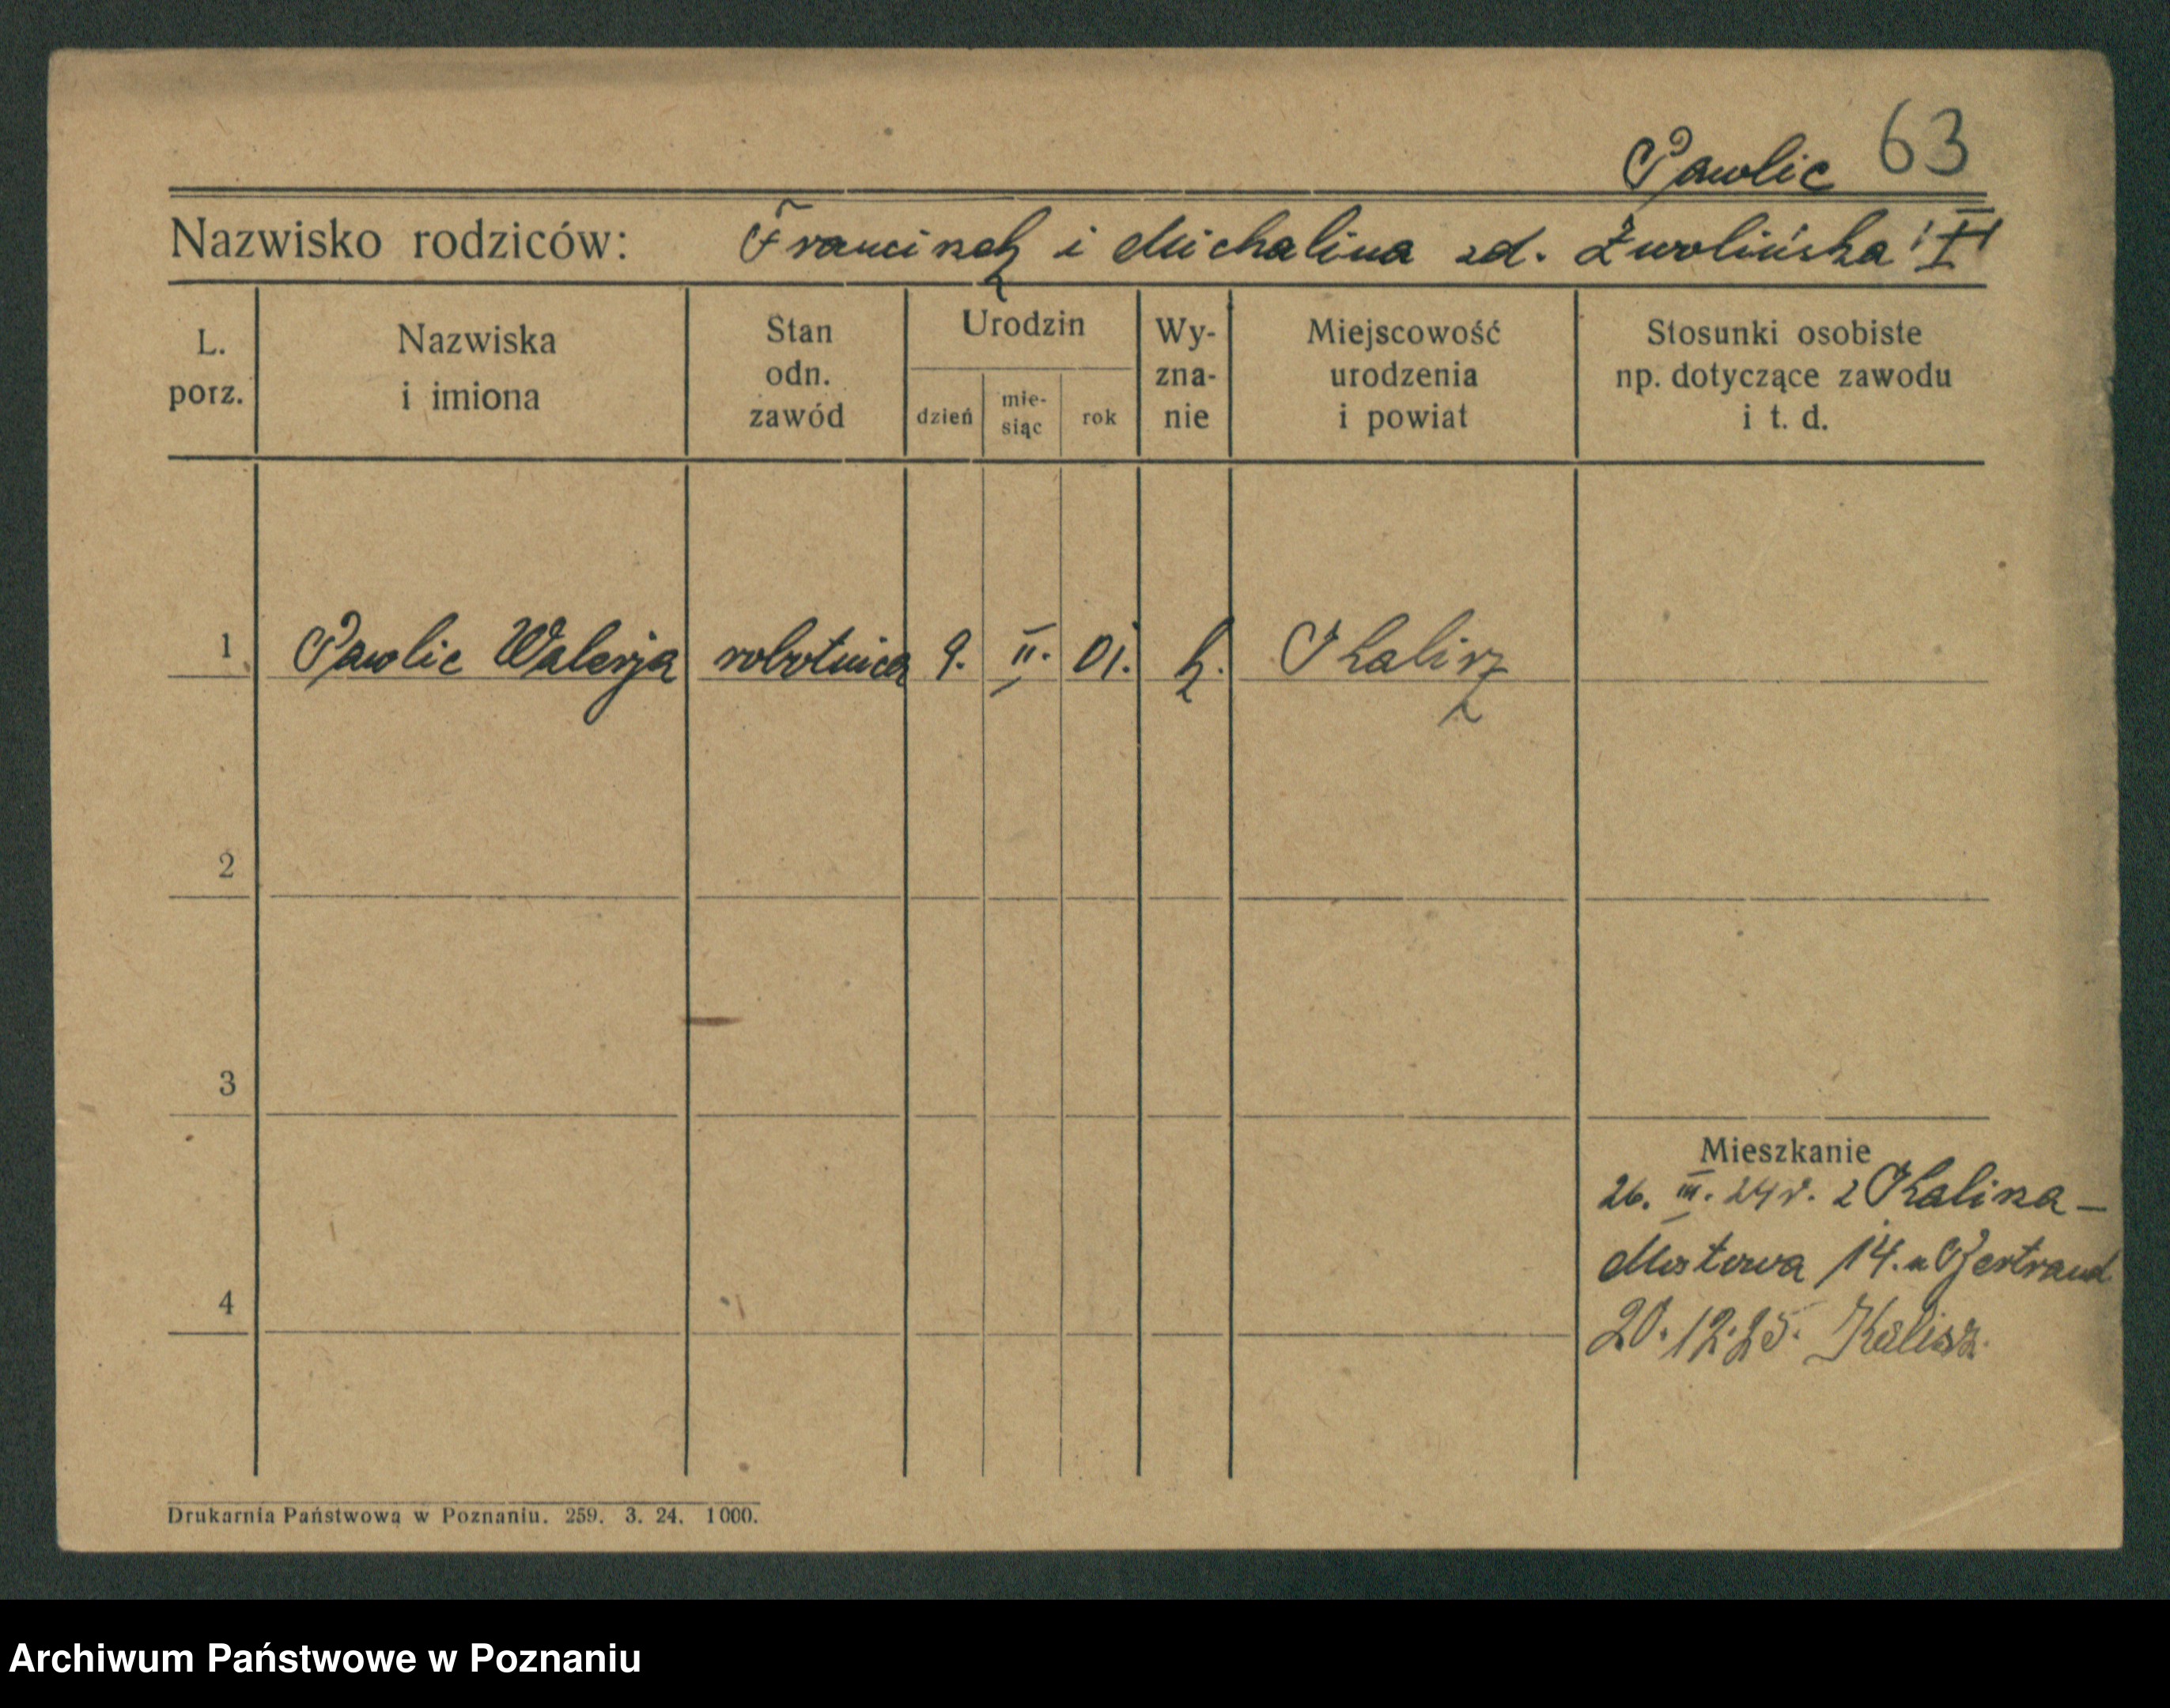 Pawlic 63
Nazwisko rodziców: Franciszek i Michalina zd. Zwolińska
L. porz. Nazwiska i imiona Stan odn. zawód Urodzin dzień mie- siąc rok Wy- zna- nie Miejscowość urodzenia i powiat Stosunki osobiste np. dotyczące zawodu i t. d.
1 Pawlic Walerja robotnica 9. II. 01. k. Kalisz
2
3
Mieszkanie
26. III. 24 r. z Kalisza –
Mostowa 14. u Bertrand
4
20.12.25. Kalisz.
Drukarnia Państwowa w Poznaniu. 259. 3. 24. 1000.
Archiwum Państwowe w Poznaniu